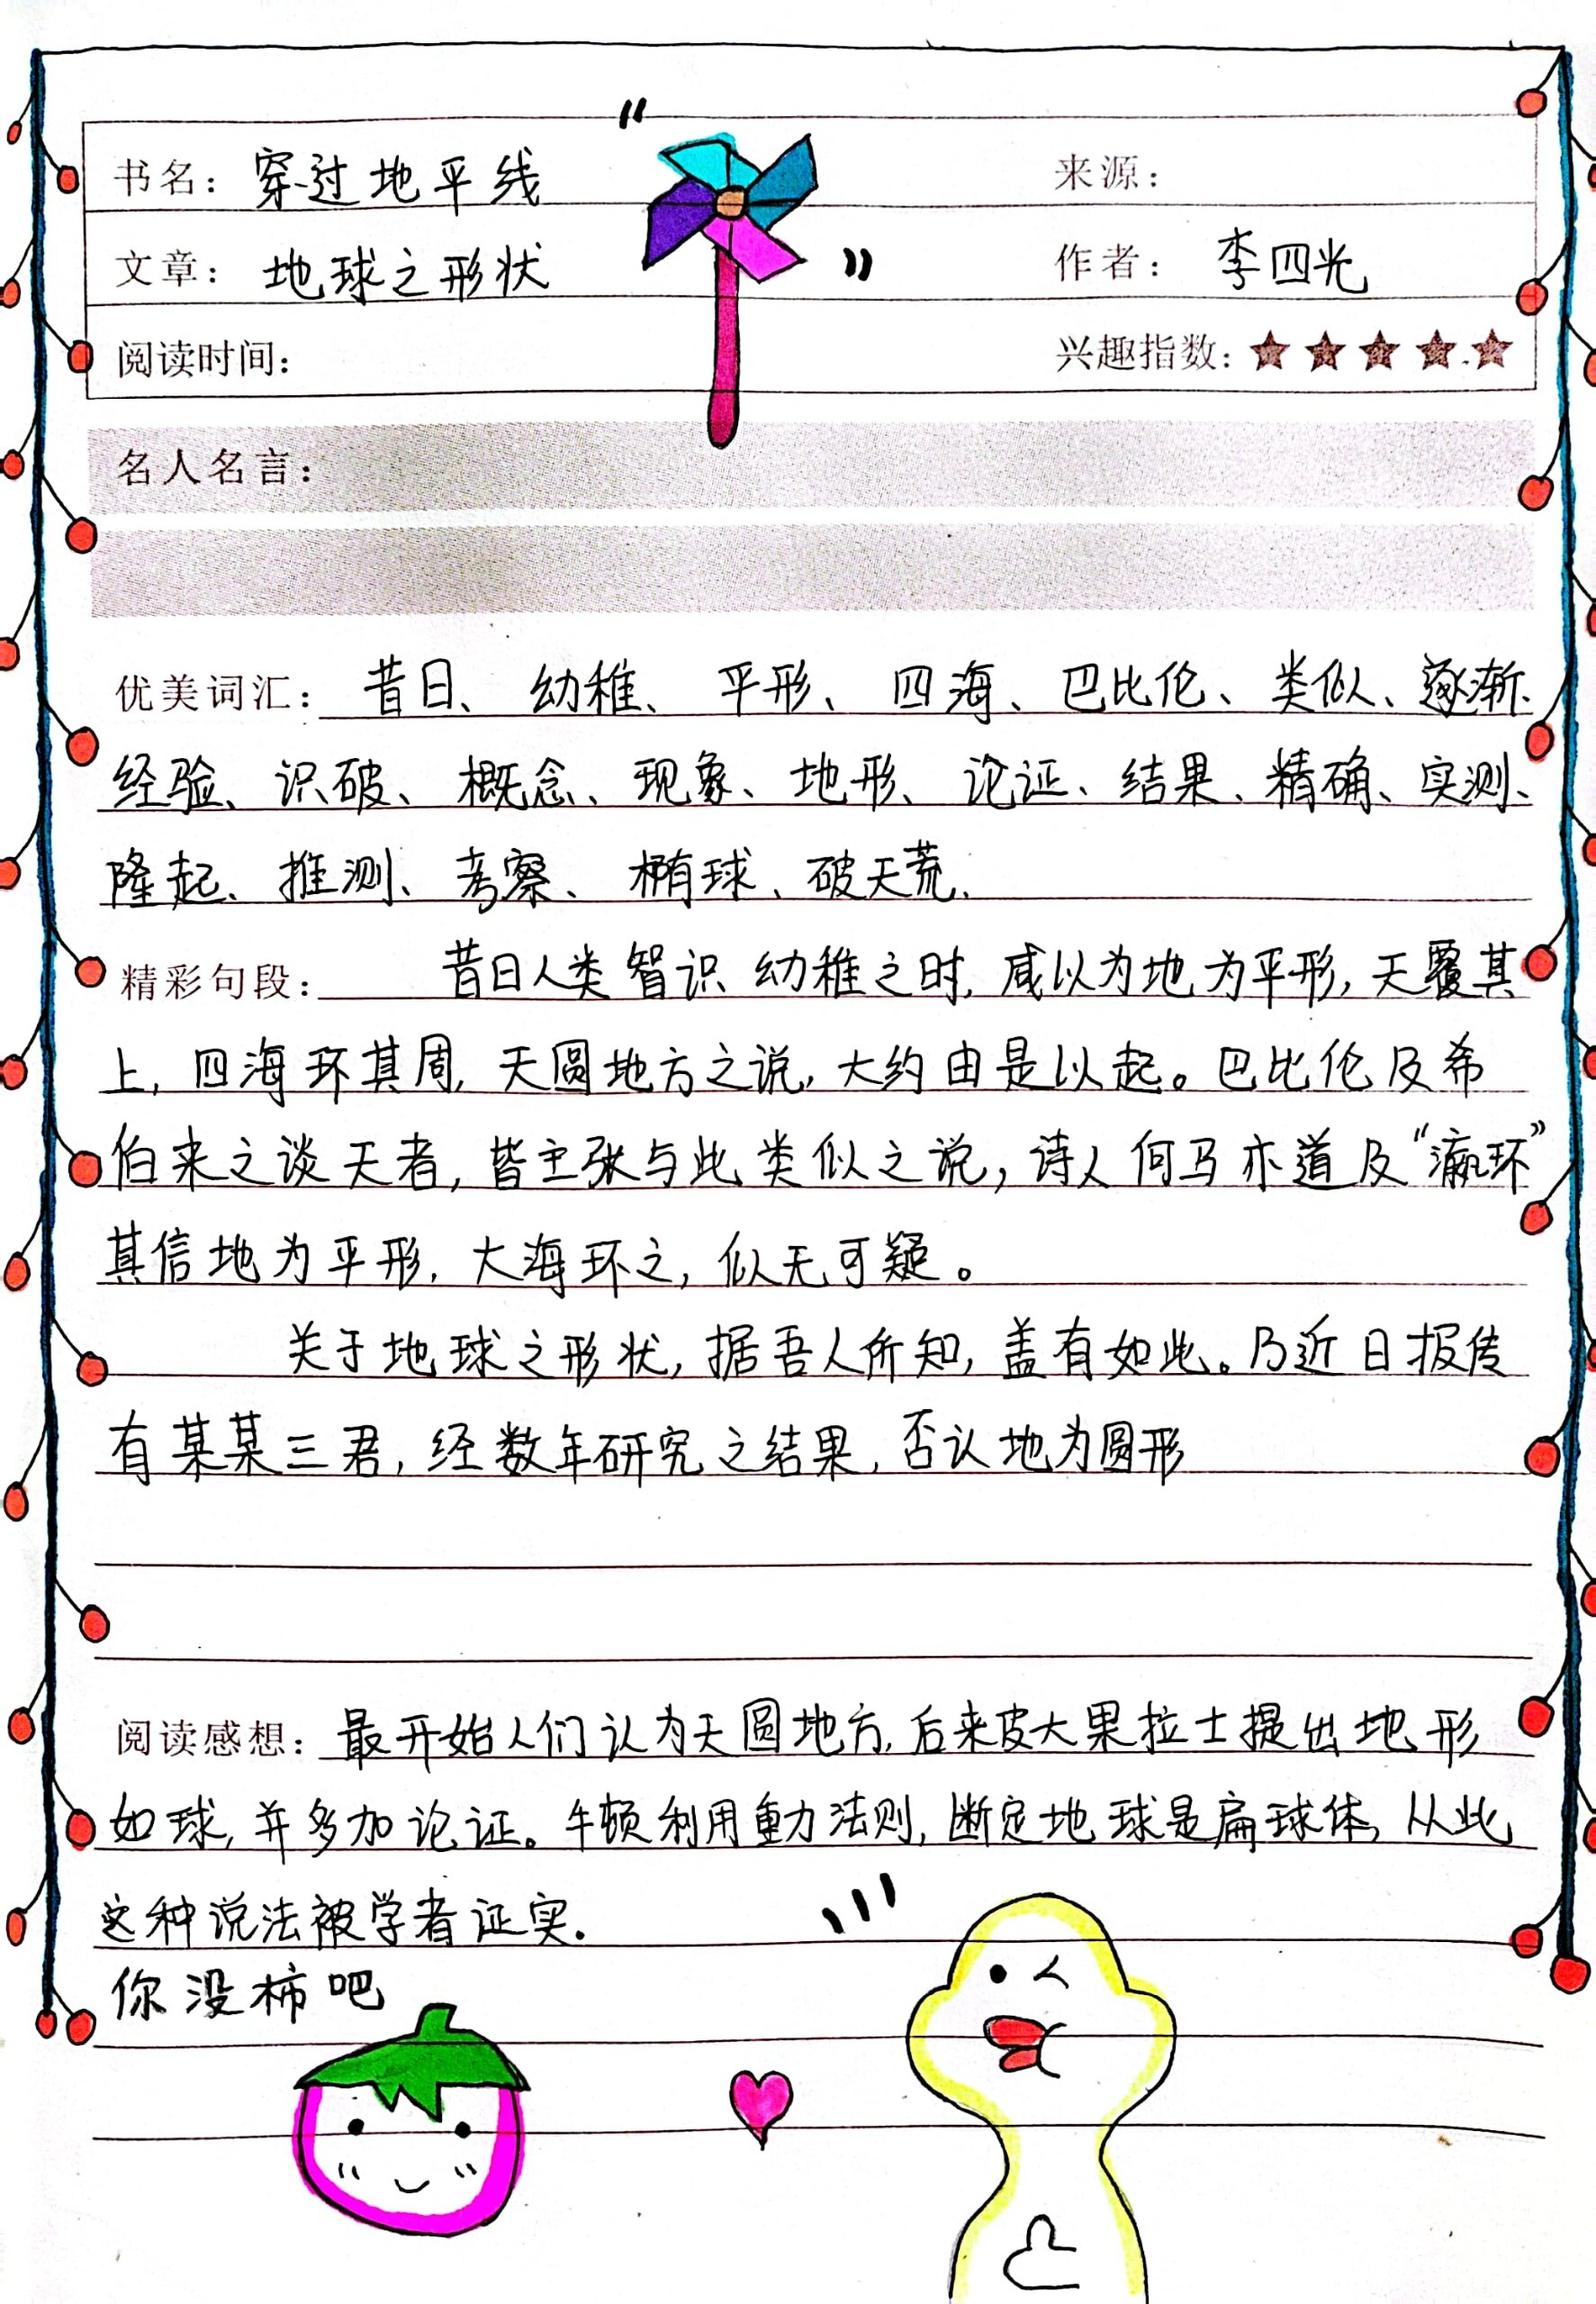 书名：穿过地平线 来源：
文章：地球之形状 作者：李四光
阅读时间： 兴趣指数：★★★★★
名人名言：
优美词汇：昔日、幼稚、平形、四海、巴比伦、类似、逐渐、
经验、识破、概念、现象、地形、论证、结果、精确、实测、
隆起、推测、考察、椭球、破天荒、
精彩句段：昔日人类智识幼稚之时，咸以为地为平形，天覆其
上，四海环其周，天圆地方之说，大约由是以起。巴比伦及希
伯来之谈天者，皆主张与此类似之说，诗人何马亦道及“瀛环”
其信地为平形，大海环之，似无可疑。
关于地球之形状，据吾人所知，盖有如此。乃近日报传
有某某三君，经数年研究之结果，否认地为圆形
阅读感想：最开始人们认为天圆地方，后来皮大果拉士提出地形
如球，并多加论证。牛顿利用重力法则，断定地球是扁球体，从此
这种说法被学者证实．
你没柿吧